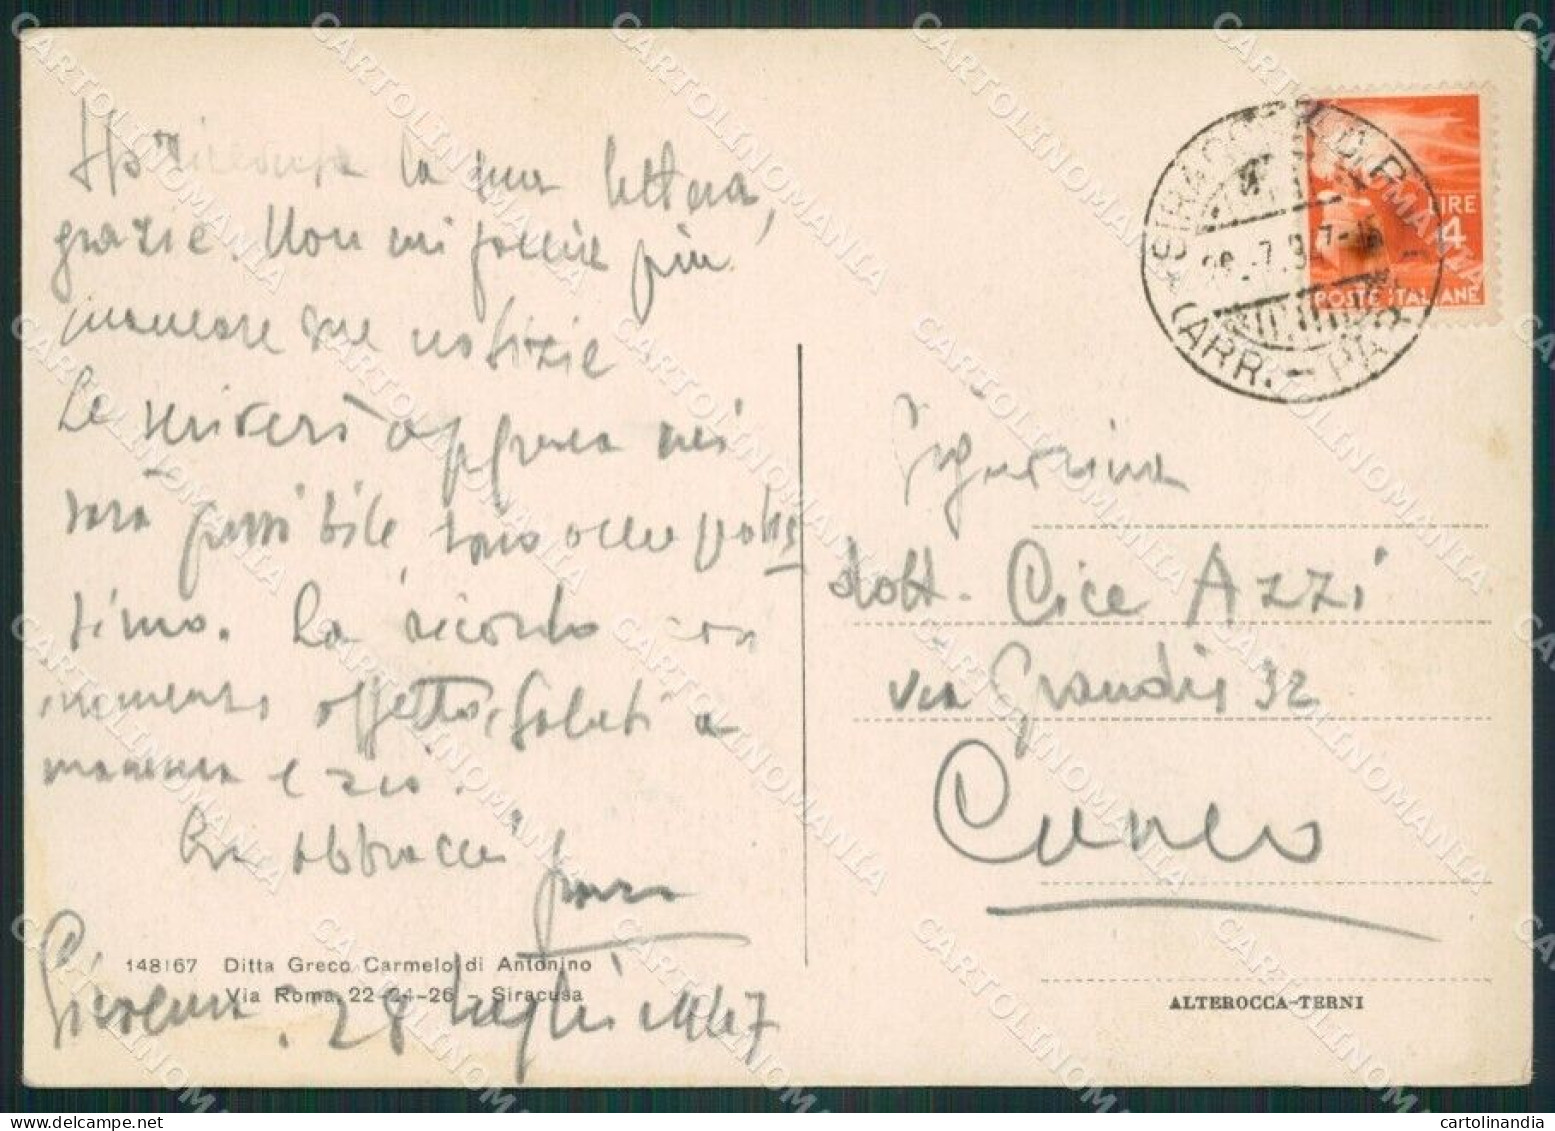 Ho ricevuta la sua lettera,
grazie. Non mi faccia più
mancare sue notizie
Le scriverò appena mi
sarà possibile sono occupatis
simo. La ricordo con
immenso affetto, saluti a
mamma e zio.
La abbraccia
Siracusa. 28 luglio 1947
148167 Ditta Greco Carmelo di Antonino
Via Roma, 22-24-26 - Siracusa
LIRE
4
POSTE ITALIANE
(ARR. - PA
Signorina
dott. Cice Azzi
via Grandis 32
Cuneo
ALTEROCCA-TERNI
CARTOLINOMANIA
cartolinandia